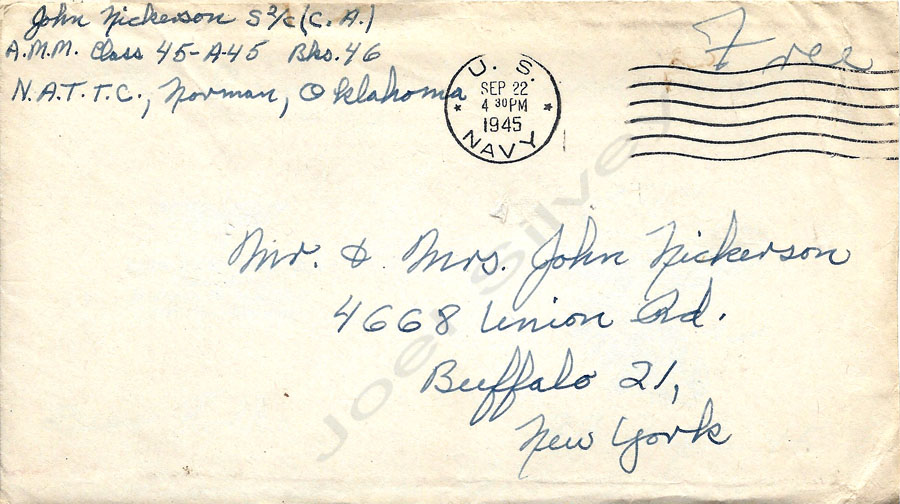 John Nickerson S2/c (C.A.)
A.M.M. Class 45-A-45 Bks. 46
N.A.T.T.C., Norman, Oklahoma
Free
U. S.
SEP 22
4 30 PM
1945
NAVY
Mr. & Mrs. John Nickerson
4668 Union Rd.
Buffalo 21,
New York
Joel Silver